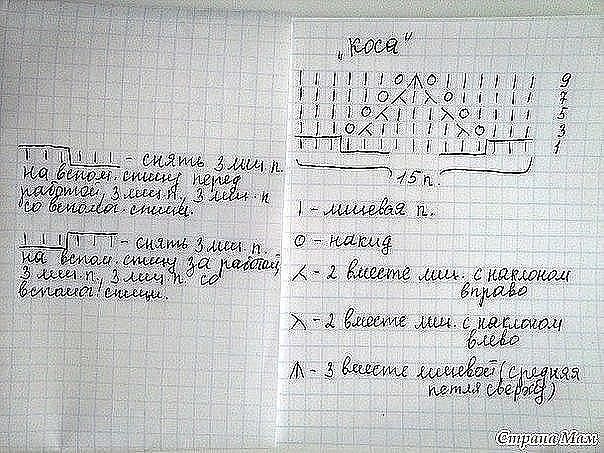 "коса"
| | | | | | O ⋏ O | | | | | | 9
7
5
3
1
15 п.
— снять 3 лиц п.
на вспом. спицу перед
работой, 3 лиц п., 3 лиц. п
со вспомог. спицы.
— снять 3 лиц. п
на вспом. спицу за работой,
3 лиц п., 3 лиц п. со
вспомог. спицы.
| - лицевая п.
O - накид
⋌ - 2 вместе лиц. с наклоном
вправо
⋋ - 2 вместе лиц. с наклоном
влево
⋔ - 3 вместе лицевой (средняя
петля сверху)
Страна Мам